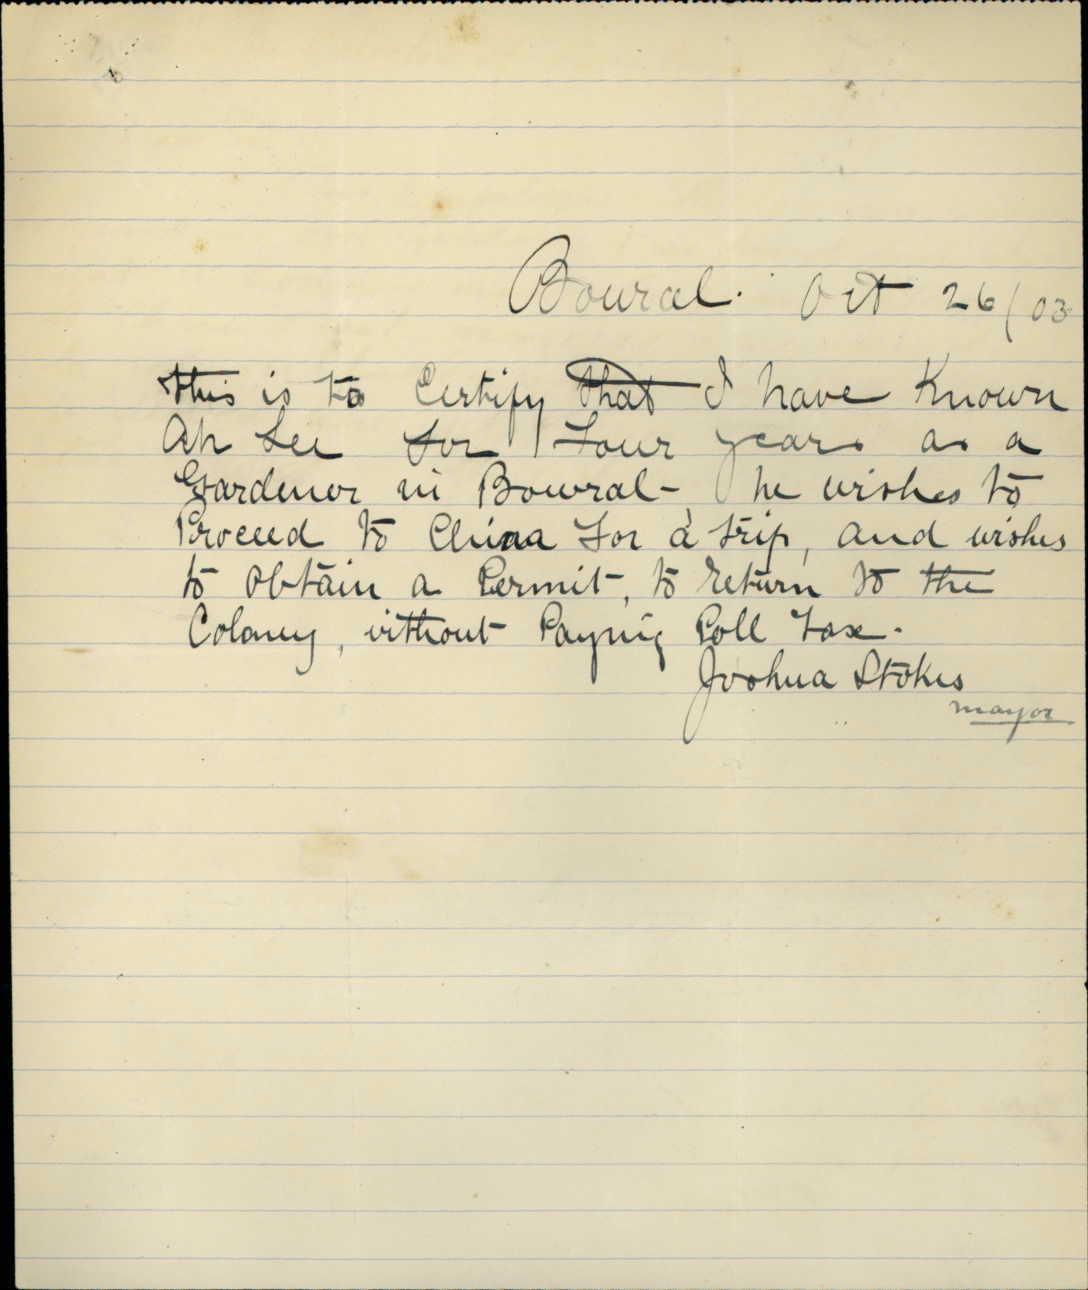 Bowral. Oct 26/03
This is to Certify that I have Known
Ah Lee for Four years as a
Gardener in Bowral - he wishes to
Proceed to China For a trip, and wishes
to obtain a Permit, to return to the
Colony, without Paying Poll Tax.
Joshua Stokes
mayor